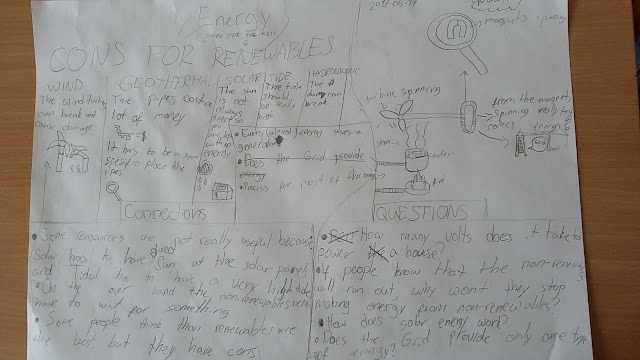 Energy
CONS FOR RENEWABLES
WIND
The wind
can break and
cause damage
GEOTHERMAL
The pipes cost a
lot of money
$$$
It has to be in
specific place the
pipes
SOLAR
The sun
is not
always
energy
TIDE
The tide
should
be really
high
The
can
break
• energy uses a
generator
• Does the Grid provide
energy
• Process for most of the
2016-05-17
magnets spinning
turbine spinning
from the magnet
spinning really fast
comes energy
Grid
water
fire
Connections
• Some resources are not really useful because
solar has to have direct sun at the solar panel
and Tidal has to have a very high tide
• On the hand the non-renewables
have to wait for something
• Some people think than renewables are
the best but they have cons
QUESTIONS
• How many volts does it take to
power a house?
• If people know that the non-renewables
will run out, why wont they stop
making energy from non-renewables?
• How does solar enery work?
• Does the Grid provide only one type
of energy?